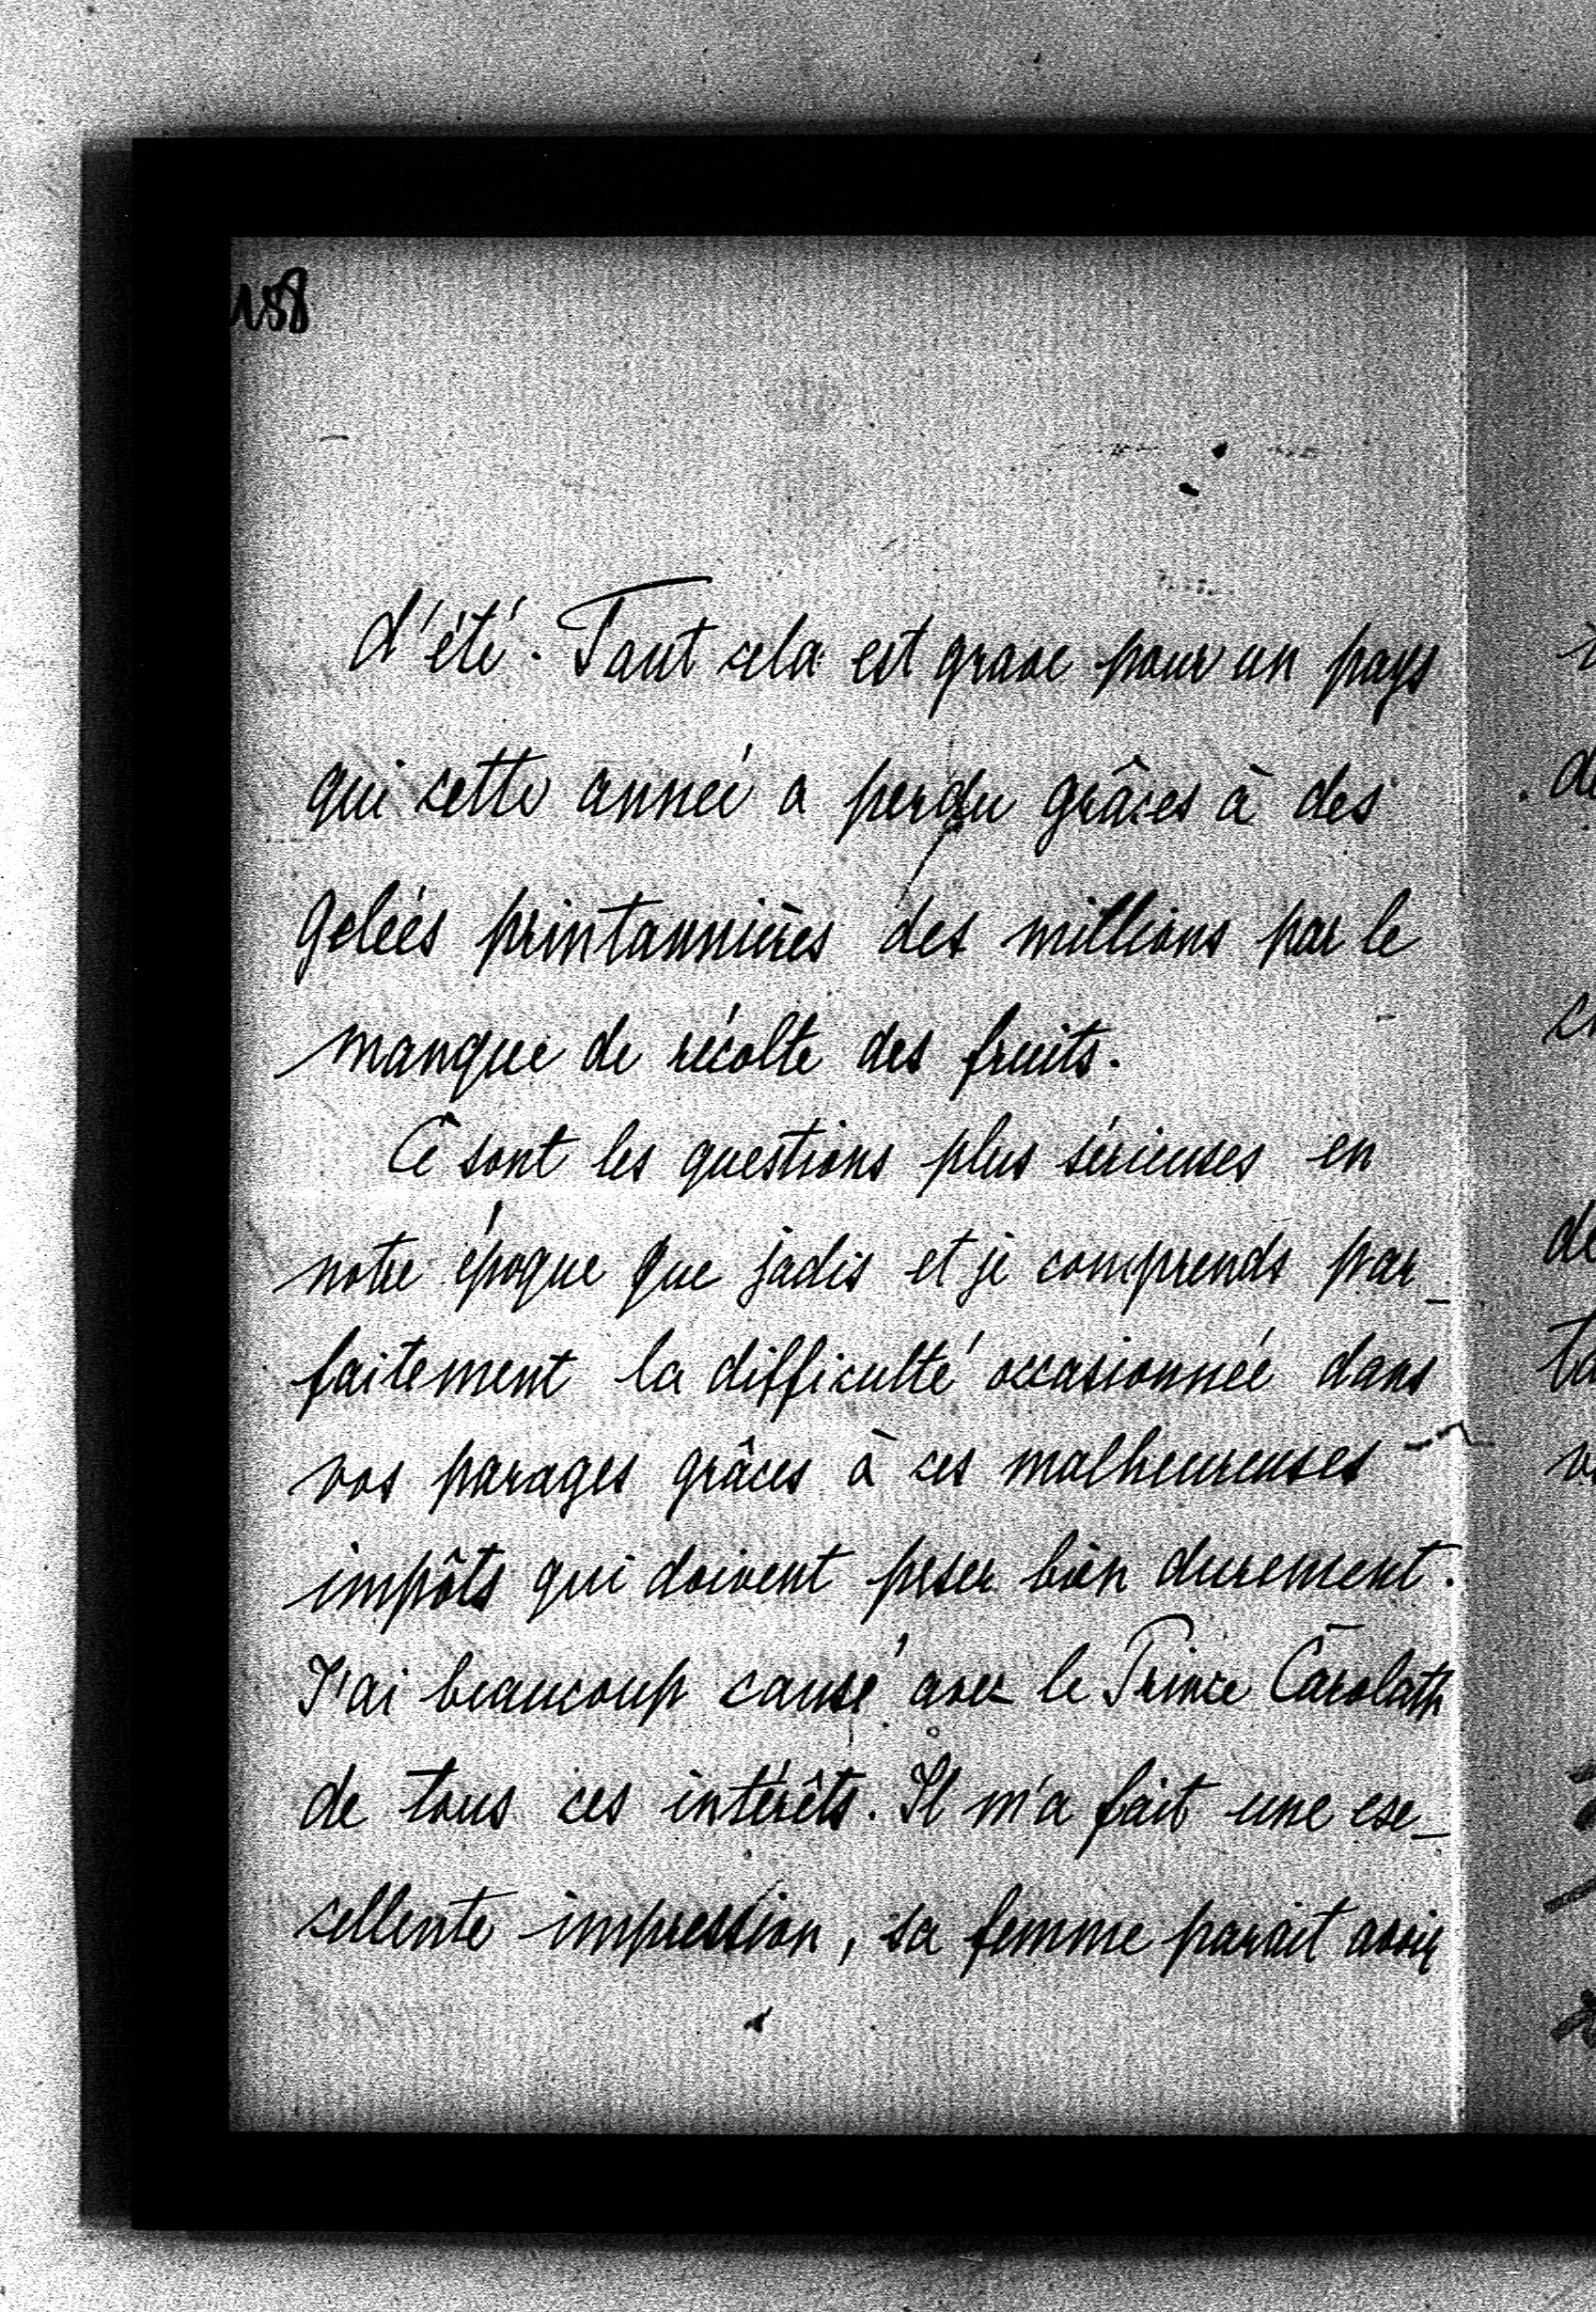 158
d'été. Tout cela est grave pour un pays
qui cette année a perdu grâces à des
gelées printannières des millions par le
manque de récolte des fruits.
Ce sont les questions plus sérieuses en
notre époque que jadis et je comprends par_
faitement la difficulté occasionnée dans
vos parages grâces à ces malheureuses
impôts qui doivent peser bien durement.
J'ai beaucoup causé avec le Prince Carolath
de tous ces intérêts. Il m'a fait une exe_
cellente impression, sa femme parait avoir